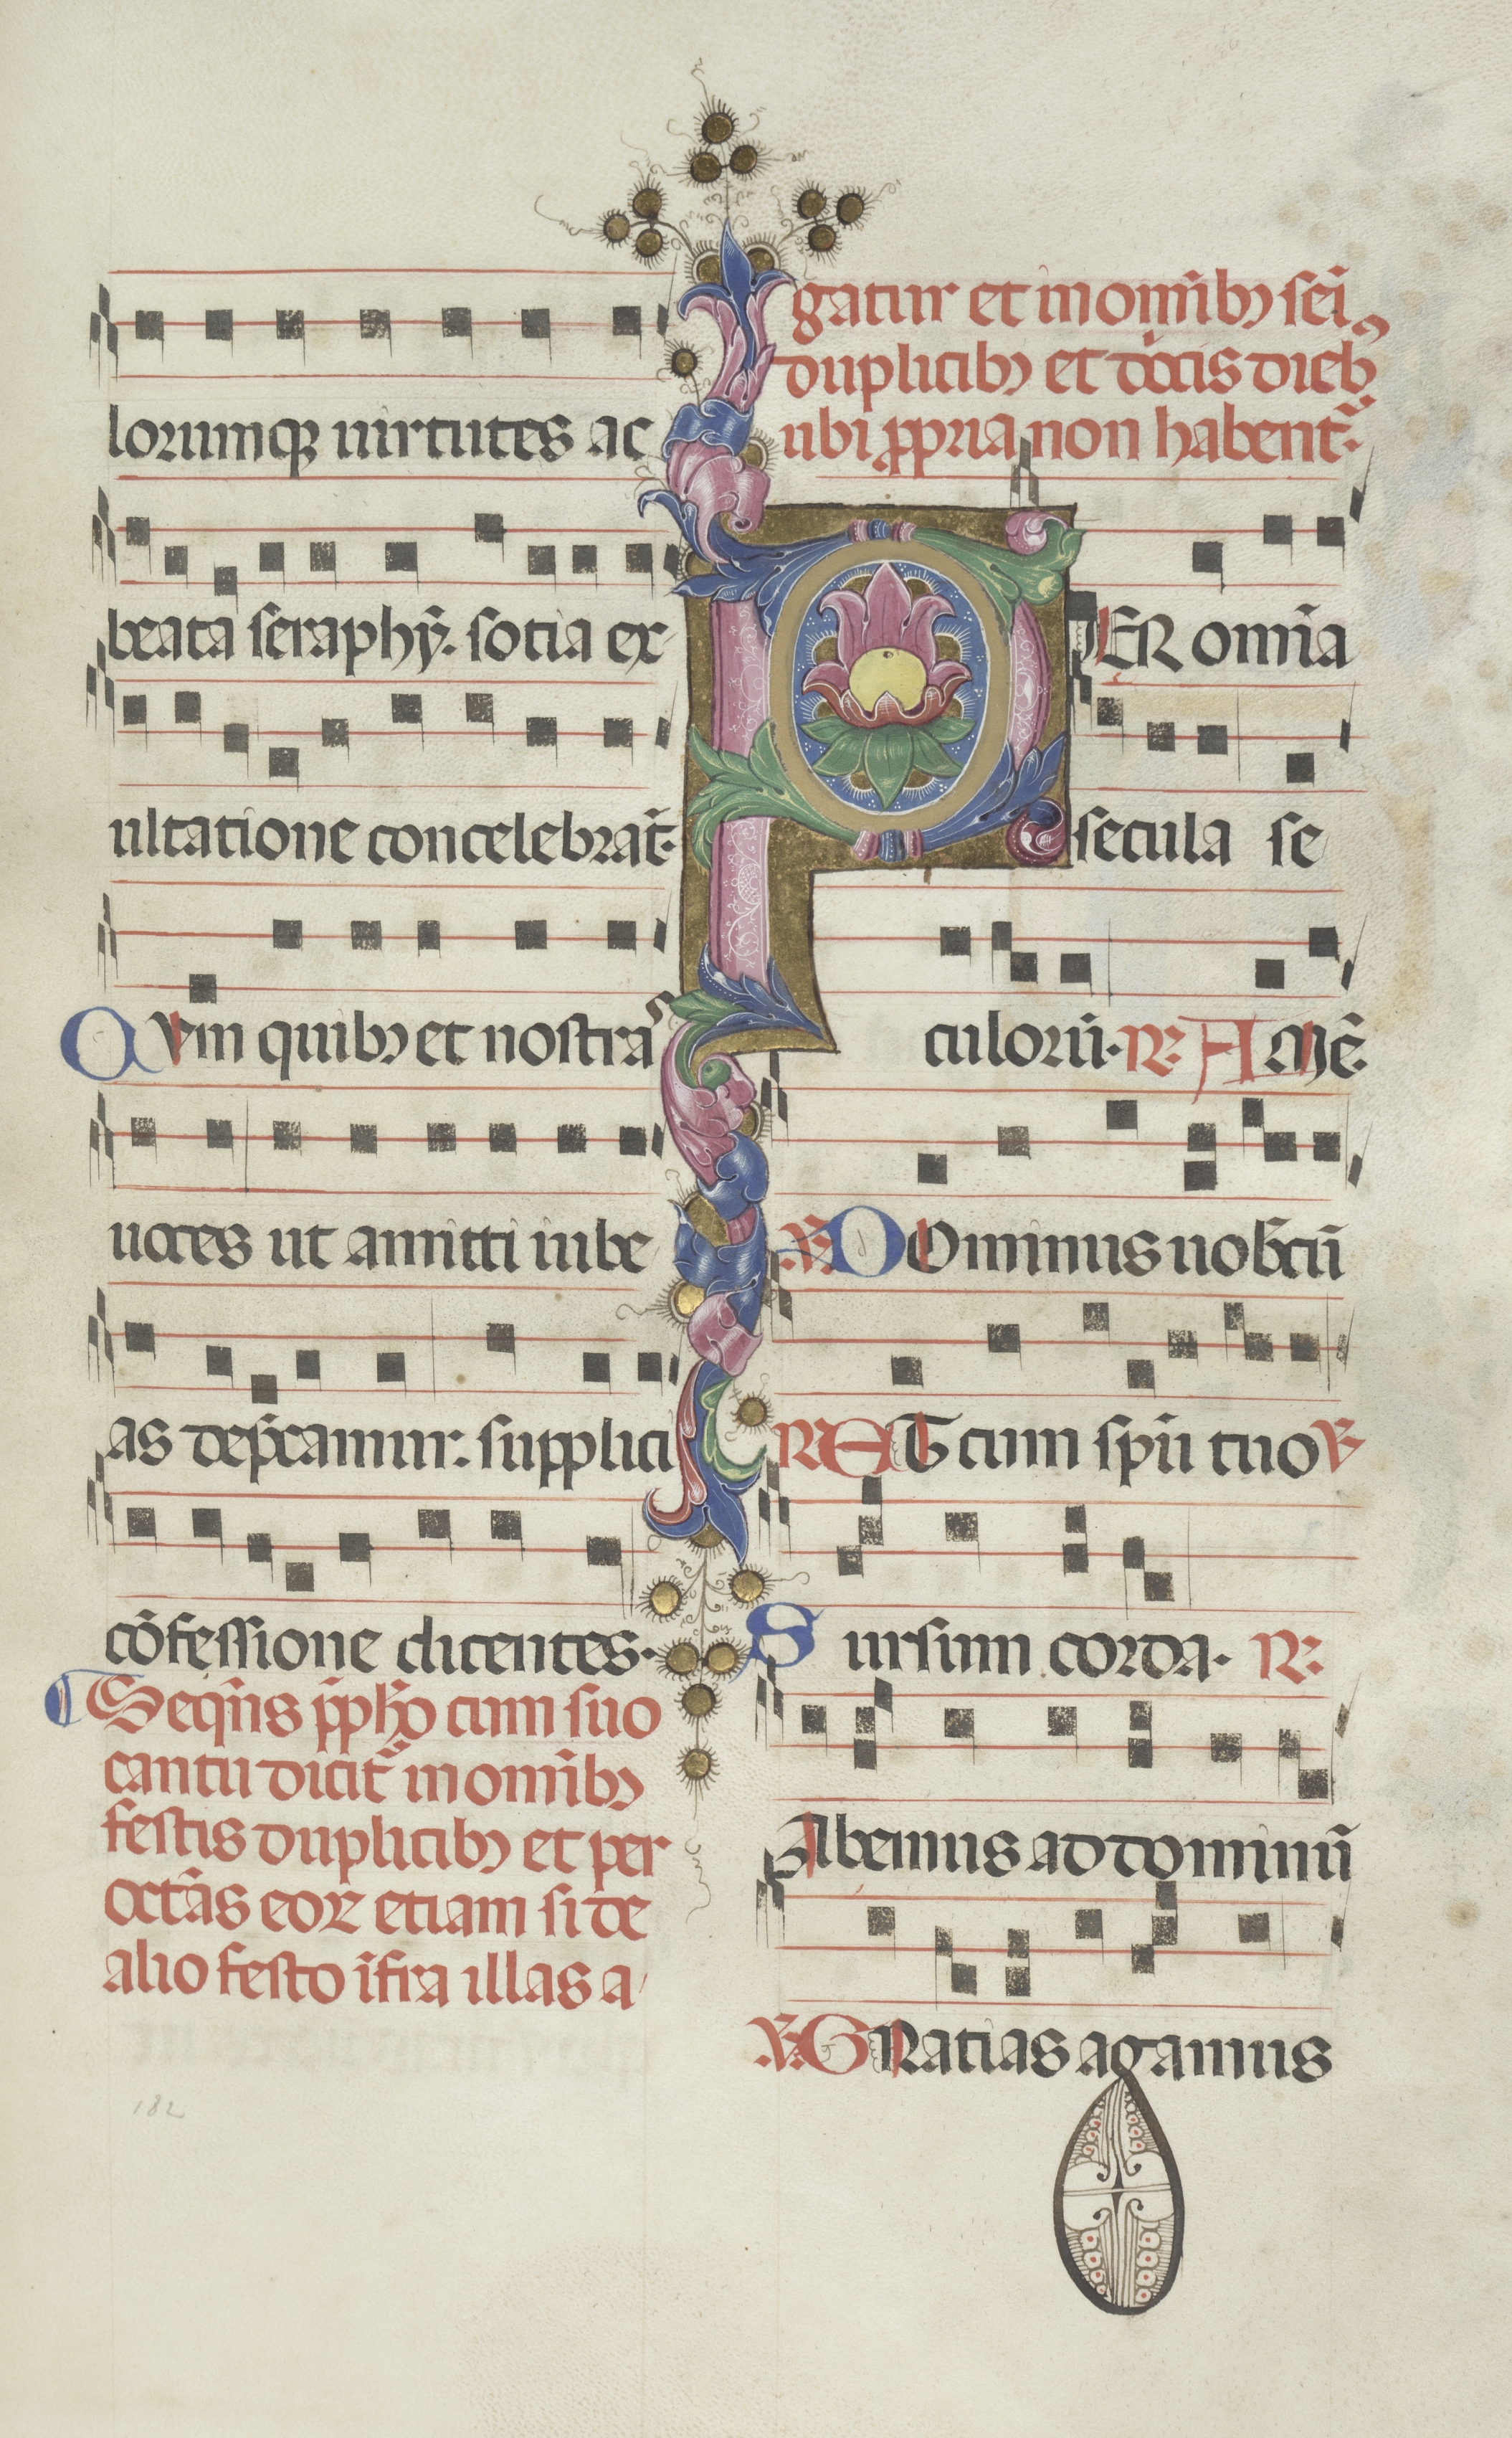 lorumqꝫ uirtutes ac
beata seraphȳ. sotia ex
ultatione concelebrāt.
Quin quibꝫ et nostrās
uoces ut amitti iube
as dep̄camur. supplici
cōfessione dicentes.
Seqn̄s p̄pħo cum suo
cantu dicit̄ in omībꝫ
festis duplicibꝫ et per
octāas eoꝝ etiam si de
alio festo īfra illas a
gatur et in omībꝫ sēi
duplicibꝫ et dōcis diebꝫ
ubi ꝓpria non habent̄.
PER omīa
secula se
culorū. R. A MĒ.
V. DOminus uobcū
R ET cum spū tuo V
Sursum corda. R.
Abemus ad dominū
V. GRatias agamus
182